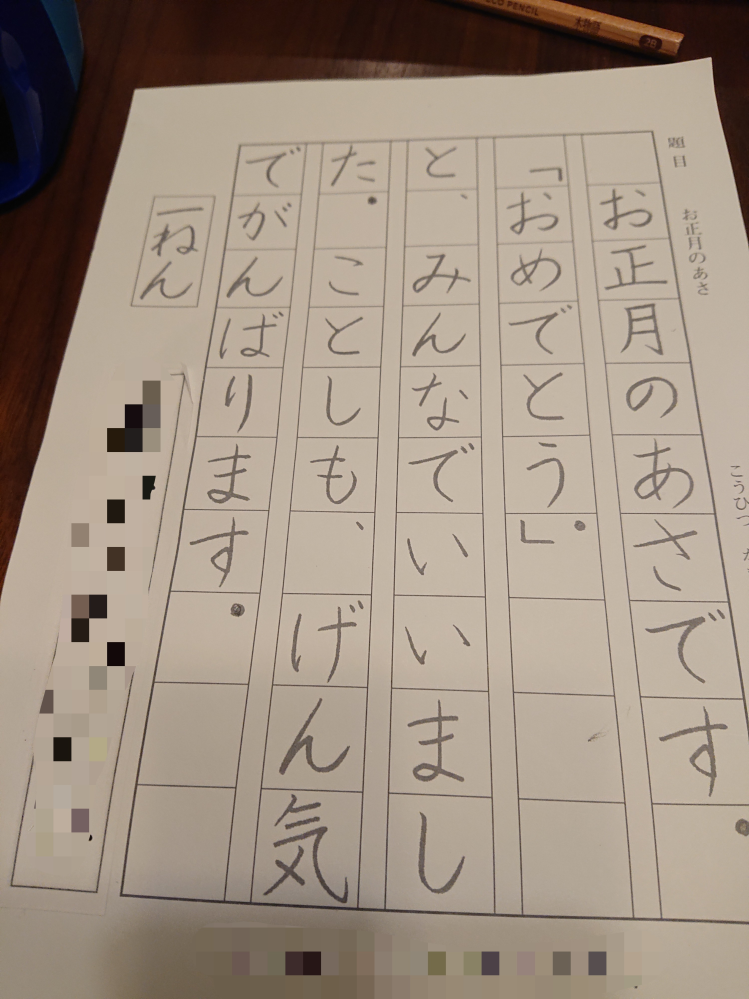 題目 お正月のあさ
お正月のあさです。
「おめでとう。」
と、みんなでいいまし
た。ことしも、げん気
でがんばります。
一ねん
こうひつ
PENCIL
2B